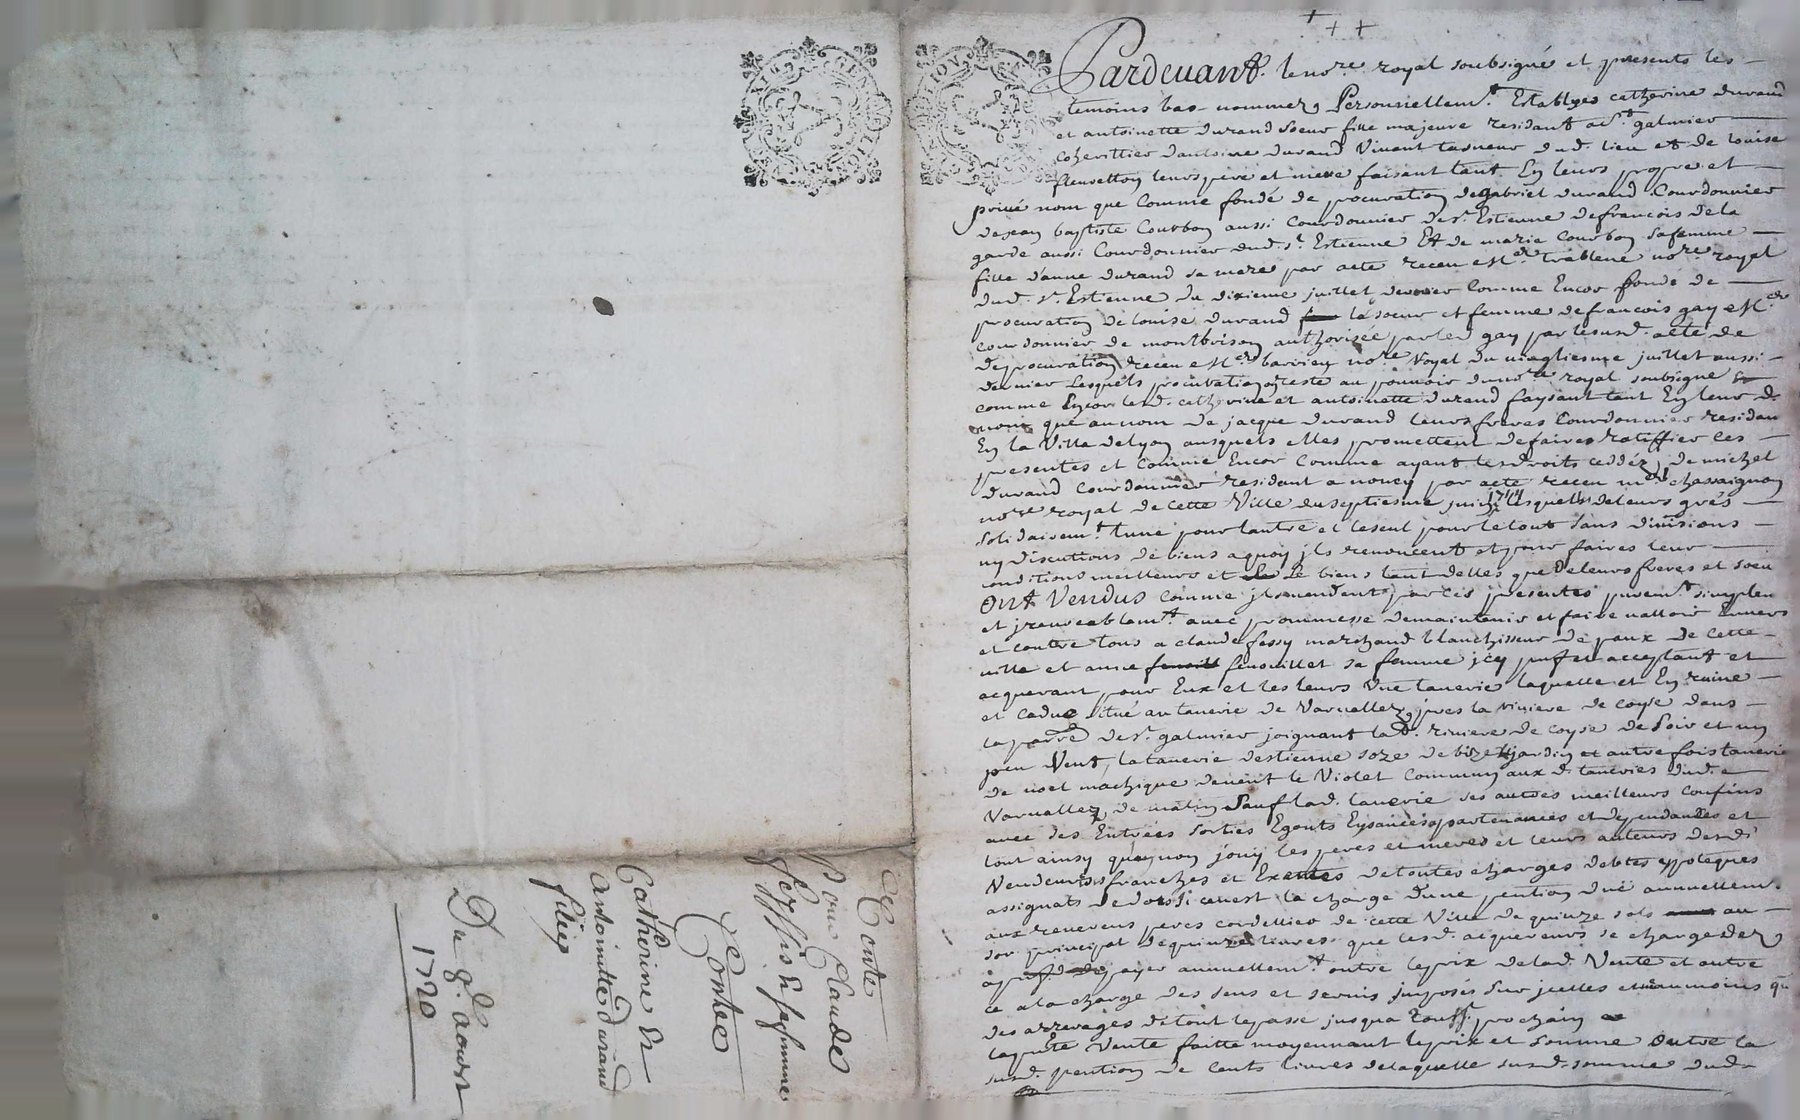 Pardevant. le nore. royal soubsigné et presents les
temoins bas nommez, Personnellemt. Establyes catherine durand
et antoinette durand soeur fille majeure residant a st. galmier
dantoine durand vivant taneur dud. lieu et de louise
leurs pere et mere faisant tant En leurs propre et
privé nom que comme fondé de procuration de gabriel durand Courdonnier
de jean baptiste Courbon aussi Courdonnier de st. Estienne de francois de la
garde aussi Courdonnier dud. st. Estienne Et de marie Courbon sa femme
fille d'anne durand sa mere par acte receu Me. trablene nore royal
dud. st. Estienne du dixieme juillet dernier Comme Encor fondé de
procuration de louise durand la soeur et femme de francois gay Me.
courdonnier de montbrison authorisée par led gay par lesusd. acte de
de procuration receu Me nore. Royal du juillet aussi
dernier Lesquels procurations resté au pouvoir du nore. royal soubsigne
comme Encor lesd. catherine et antoinette durand faysant tant En leur d.
nom que au nom de jacque durand leurs freres Courdonnier residan
En la Ville de lyon ausquels elles promettent de faire ratiffier les
presentes et comme Encor Comme ayant les droits ceddéz de michel
durand Courdonnier residant a par acte receu me chassaignon
nore royal de cette Ville du septiesme juin 1714 lesquels de leurs grés
solidairemt. lune pour lautre et le seul pour le tout sans divisions
ny discutions de biens a quoy jls renoncent et pour faires leur
conditions meilleurs et le biens tant delles que de leurs freres et soeu
Ont Vendus comme jls vendent par ces presentes puremt. simplem
et jrrevocablemt. avec promesse de maintenir et faire valloir Envers
et contre tous a claude fessy marchand blanchisseur de paux de cette
ville et anne fenouillet sa femme jcy pnt et acceptant et
acquerant pour Eux et les leurs Une tanerie laquelle et En ruine
et caduc situé au tanerie de Varnallez, pres la riviere de coyse dans
la parre de st. galmier joignant lad. riviere de coyse de soir et un
peu Vent, la tanerie destienne soze de bize jardin et autre fois tanerie
de noel machique devent le Violet Commun aux d. taneries dud.
Varnallez, de matin Sauf lad. tanerie ses autres meilleurs confins
avec ses Entrées sorties Egouts Eysances apartenances et dependandes et
tout ainsy quen on jouy les peres et meres et leurs auteurs desd.
Vendeurs franches et Exentes de toutes charges debtes yppoteques
assignats de dot si cenest la charge dune pention due annuellemt.
aux reverens peres cordellier de cette Ville de quinze sols au
sor principal de quinze livres que lesd. acquereurs se chargedez
payer annuellemt. outre le prix de lad. Vente et outre
ce a la charge des sens et servis jmposés sur jcelles
des arrerages de tout le passé jusqua touss. prochain
laqute Vente faitte moyennant le prix et somme outre la
susd. pention de cents livres de laquelle susd. somme dud.
Vente
Pour Claude
fessy & sa femme
Contre
Catherine &
Antoinette Durand
filles
Du 8e. aoust
1720